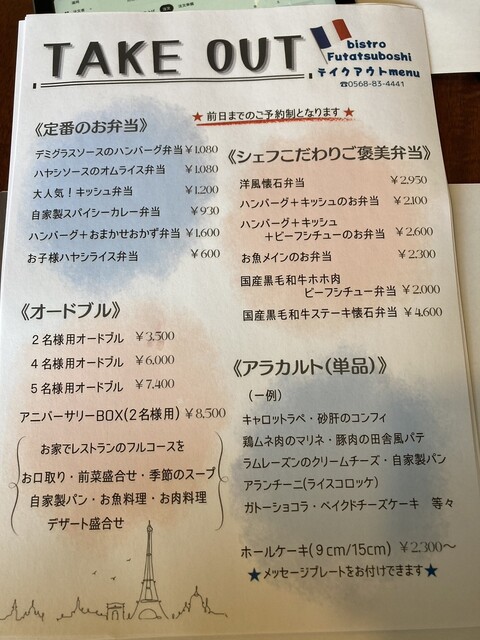 TAKE OUT
bistro
Futatsuboshi
テイクアウトmenu
☎0568-83-4441
★前日までのご予約制となります★
《定番のお弁当》
デミグラスソースのハンバーグ弁当 ¥1,080
ハヤシソースのオムライス弁当 ¥1,080
大人気！キッシュ弁当 ¥1,200
自家製スパイシーカレー弁当 ¥930
ハンバーグ+おまかせおかず弁当 ¥1,600
お子様ハヤシライス弁当 ¥600
《シェフこだわりご褒美弁当》
洋風懐石弁当 ¥2,950
ハンバーグ+キッシュのお弁当 ¥2,100
ハンバーグ+キッシュ
+ビーフシチューのお弁当 ¥2,600
お魚メインのお弁当 ¥2,300
国産黒毛和牛ホホ肉
ビーフシチュー弁当 ¥2,000
国産黒毛和牛ステーキ懐石弁当 ¥4,600
《オードブル》
2名様用オードブル ¥3,500
4名様用オードブル ¥6,000
5名様用オードブル ¥7,400
アニバーサリーBOX(2名様用) ¥8,500
お家でレストランのフルコースを
お口取り・前菜盛合せ・季節のスープ
自家製パン・お魚料理・お肉料理
デザート盛合せ
《アラカルト(単品)》
(一例)
キャロットラペ・砂肝のコンフィ
鶏ムネ肉のマリネ・豚肉の田舎風パテ
ラムレーズンのクリームチーズ・自家製パン
アランチーニ(ライスコロッケ)
ガトーショコラ・ベイクドチーズケーキ 等々
ホールケーキ(9cm/15cm) ¥2,300～
★メッセージプレートをお付けできます★